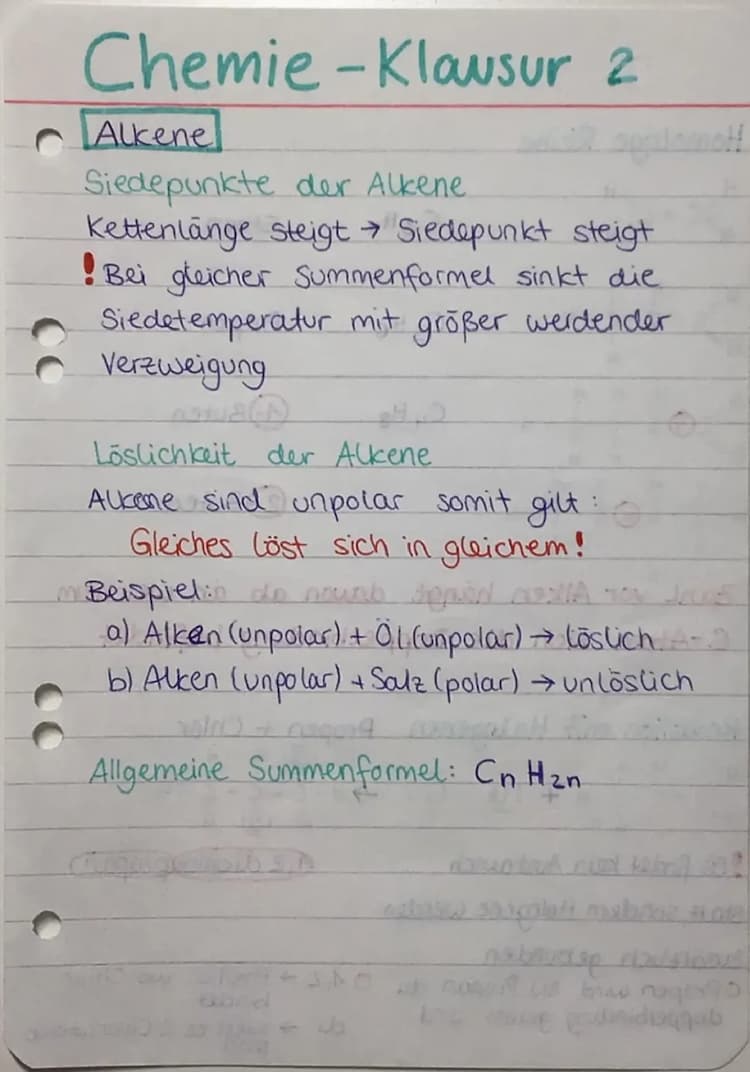 Chemie - Klausur 2
Alkene
Siedepunkte der Alkene
Kettenlänge steigt → Siedepunkt steigt
! Bei gleicher Summenformel sinkt die
Siedetemperatur mit größer werdender
Verzweigung
Löslichkeit der Alkene
Alkene sind unpolar somit gilt:
Gleiches löst sich in gleichem!
Beispiel:
a) Alken (unpolar) + Öl (unpolar) → löslich
b) Alken (unpolar) + Salz (polar) → unlöslich
Allgemeine Summenformel: CnH2n